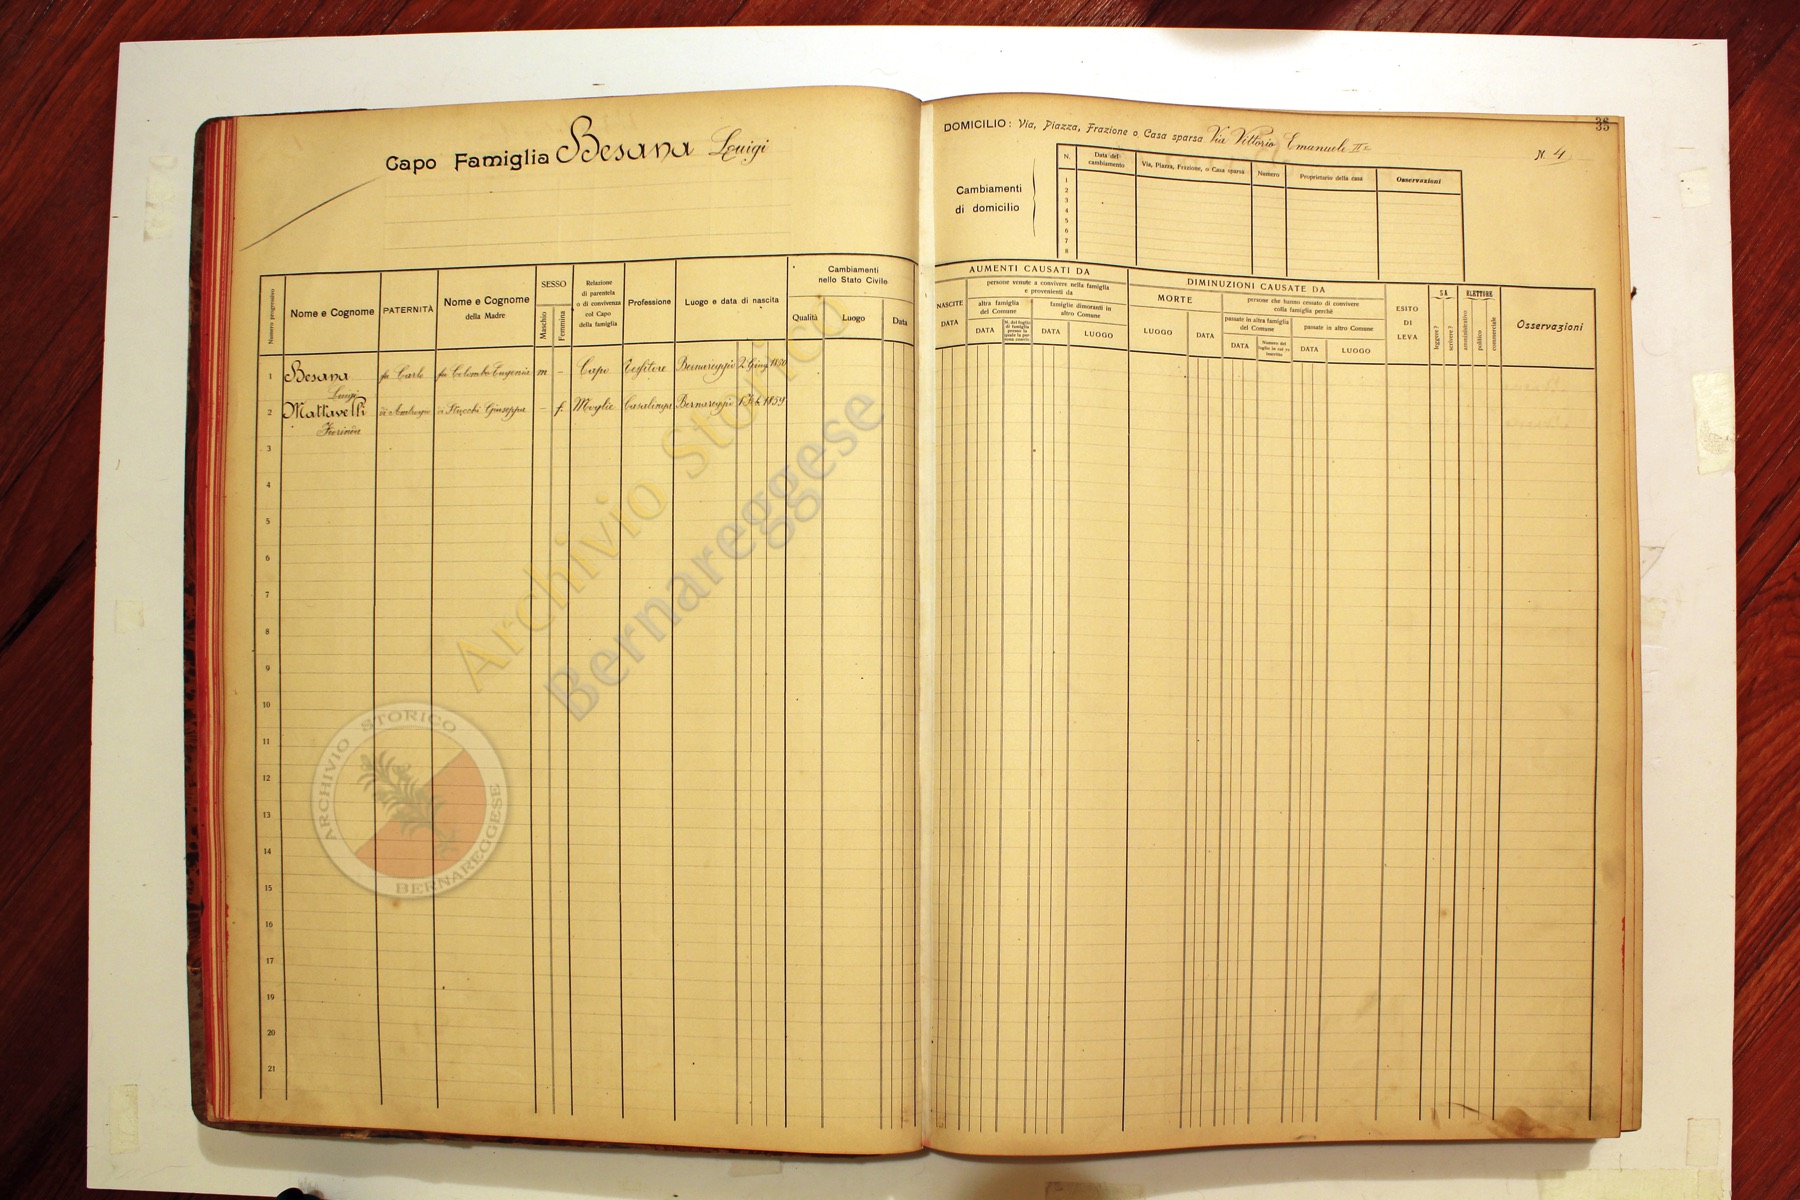 Capo Famiglia Besana Luigi
Numero progressivo
Nome e Cognome
PATERNITÀ
Nome e Cognome
della Madre
SESSO
Maschio
Femmina
Relazione
di parentela
o di convivenza
col Capo
della famiglia
Professione
Luogo e data di nascita
Cambiamenti
nello Stato Civile
Qualità
Luogo
Data
1 Besana fu Carlo fu Colombo Eugenia m - Capo Bernareggio 2 Giug 1850
Luigi
2 Mattavelli di Ambrogio di Stucchi Giuseppa - f. Moglie Casalinga Bernareggio 1 Feb 1859
Fiorinda
3
4
5
6
7
8
9
10
11
12
13
14
15
16
17
19
20
21
DOMICILIO: Via, Piazza, Frazione o Casa sparsa Via Vittorio Emanuele II
N. 4
35
Cambiamenti
di domicilio
N.
Data del
cambiamento
Via, Piazza, Frazione, o Casa sparsa
Numero
Proprietario della casa
Osservazioni
1
2
3
4
5
6
7
8
AUMENTI CAUSATI DA
NASCITE
DATA
persone venute a convivere nella famiglia
e provenienti da
altra famiglia
del Comune
DATA
N. del foglio
di famiglia
presso la
quale la per-
sona convive
famiglie dimoranti in
altro Comune
DATA
LUOGO
DIMINUZIONI CAUSATE DA
MORTE
LUOGO
DATA
persone che hanno cessato di convivere
colla famiglia perchè
passate in altra famiglia
del Comune
DATA
Numero del
foglio in cui va
inscritto
passate in altro Comune
DATA
LUOGO
ESITO
DI
LEVA
SA
leggere?
scrivere?
ELETTORE
amministrativo
politico
commerciale
Osservazioni
Archivio Storico
Bernareggese
ARCHIVIO STORICO
BERNAREGGESE